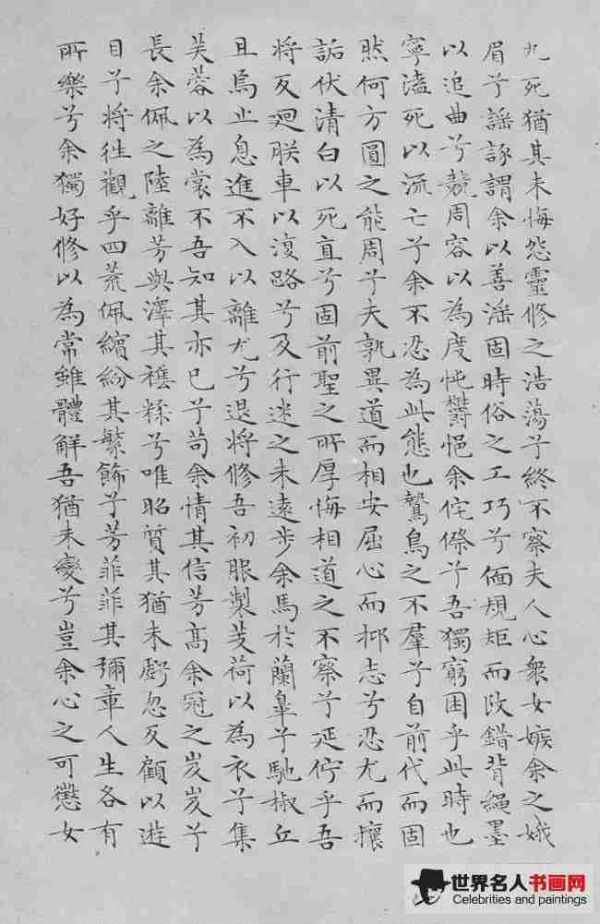 九死猶其未悔怨靈修之浩蕩兮終不察夫人心衆女嫉余之娥
眉兮謠諑謂余以善淫固時俗之工巧兮偭規矩而改錯背繩墨
以追曲兮競周容以為度忳鬱悒余侘傺兮吾獨窮困乎此時也
寧溘死以流亡兮余不忍為此態也鷙鳥之不羣兮自前代而固
然何方圓之能周兮夫孰異道而相安屈心而抑志兮忍尤而攘
詬伏清白以死直兮固前聖之所厚悔相道之不察兮延佇乎吾
將反迴朕車以復路兮及行迷之未遠步余馬於蘭皐兮馳椒丘
且焉止息進不入以離尤兮退將修吾初服製芰荷以為衣兮集
芙蓉以為裳不吾知其亦已兮苟余情其信芳高余冠之岌岌兮
長余佩之陸離芳與澤其襍糅兮唯昭質其猶未虧忽反顧以遊
目兮將往觀乎四荒佩繽紛其繁飾兮芳菲菲其彌章人生各有
所樂兮余獨好修以為常雖體解吾猶未變兮豈余心之可懲女
世界名人书画网
Celebrities and paintings